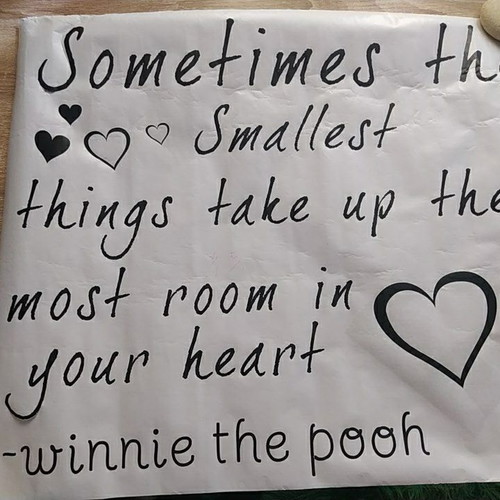 Sometimes th
Smallest
things take up the
most room in
your heart
-winnie the pooh